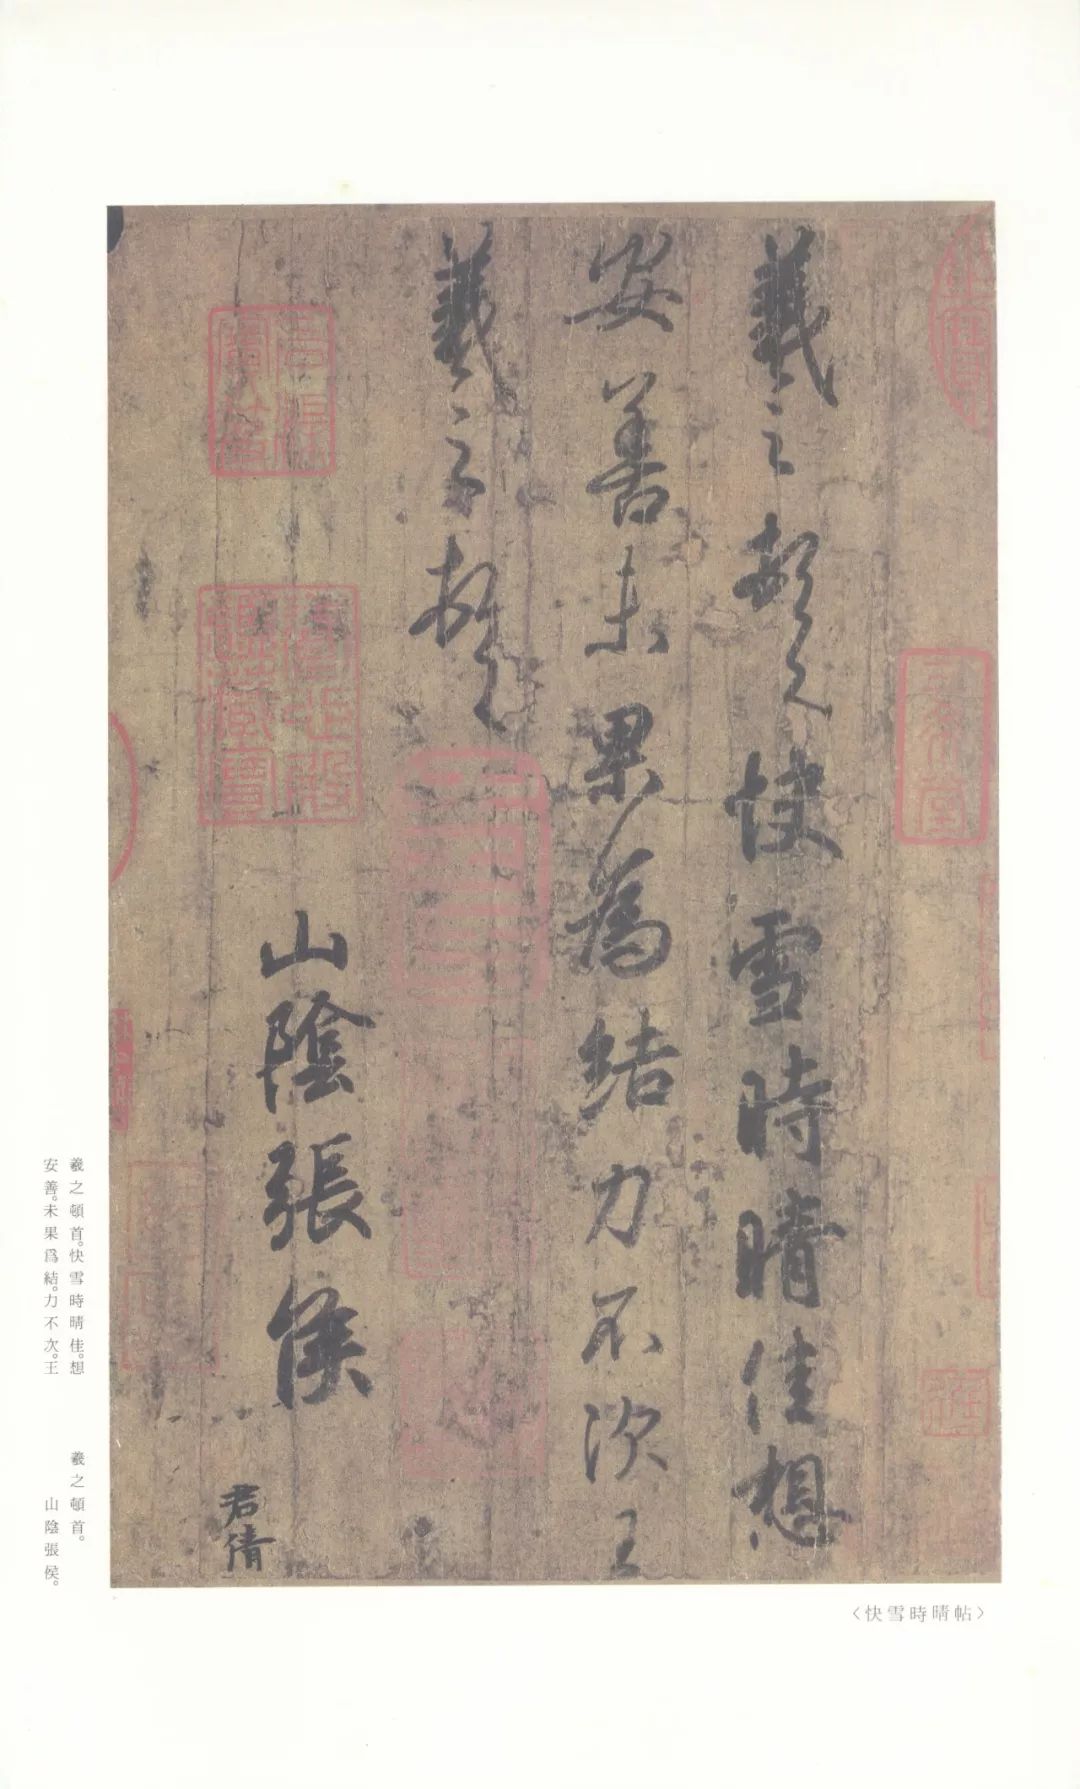 羲之頓首快雪時晴佳想
安善未果為結力不次王
羲之頓首
山陰張侯
君倩
羲之頓首。快雪時晴佳。想
安善。未果爲結。力不次。王
羲之頓首。
山陰張侯。
〈快雪時晴帖〉